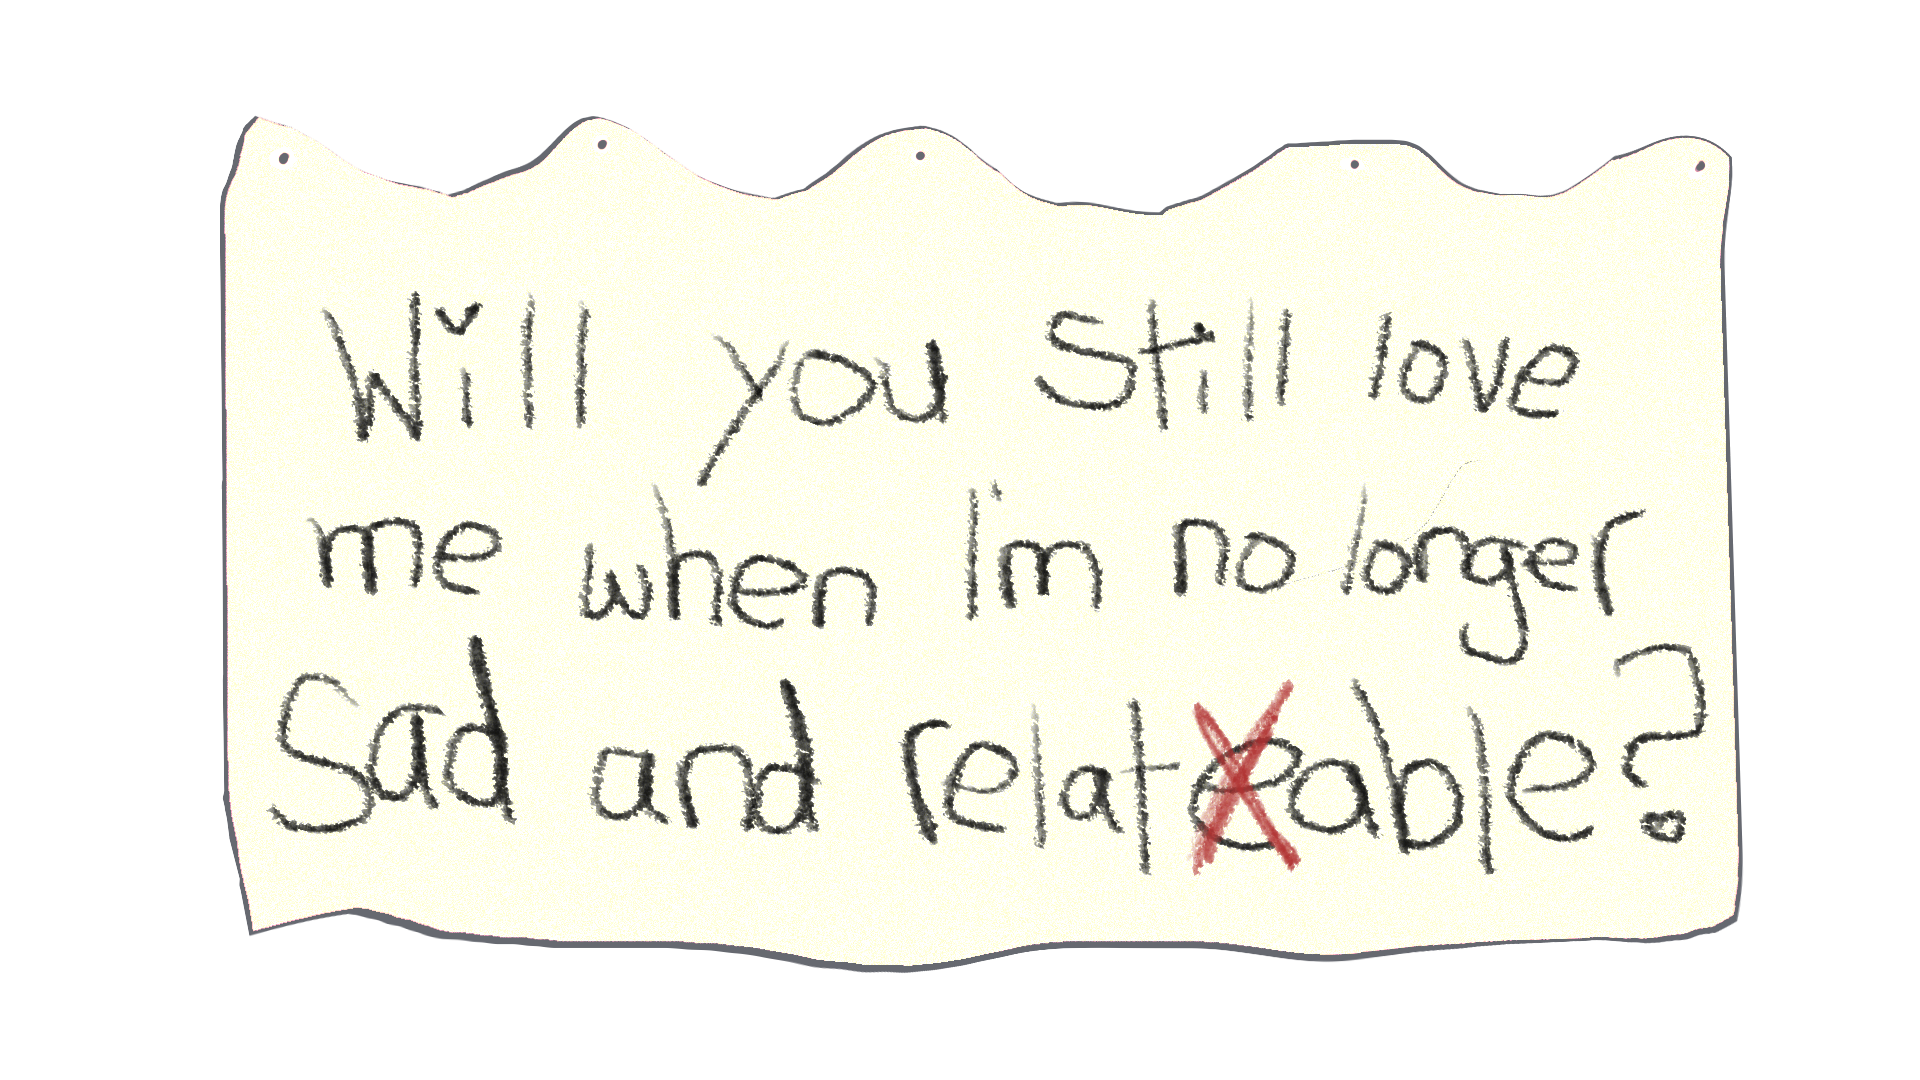 Will you Still love
me when I'm no longer
Sad and relateable?